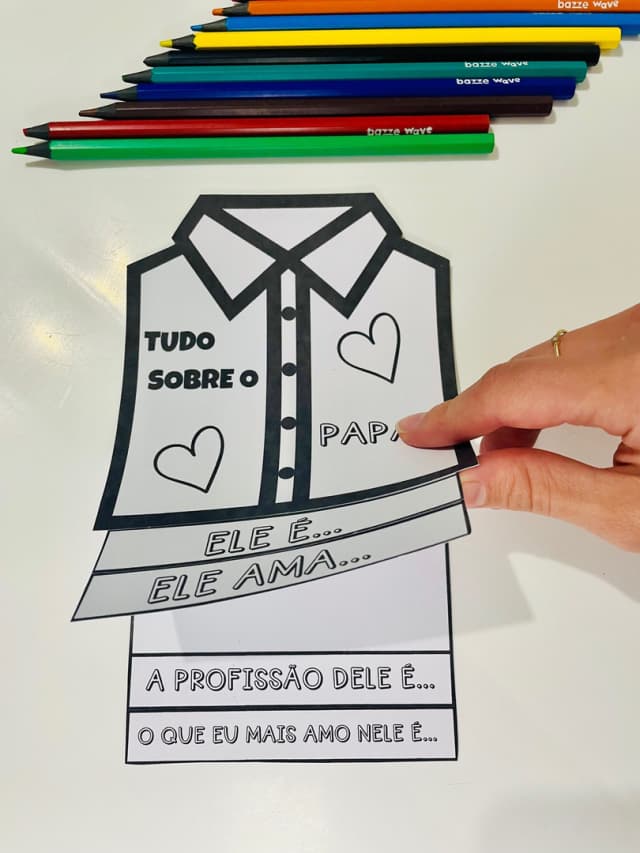 bazze wave
bazze wave
bazze wave
bazze wave
TUDO
SOBRE O
ELE É...
ELE AMA...
A PROFISSÃO DELE É...
O QUE EU MAIS AMO NELE É...